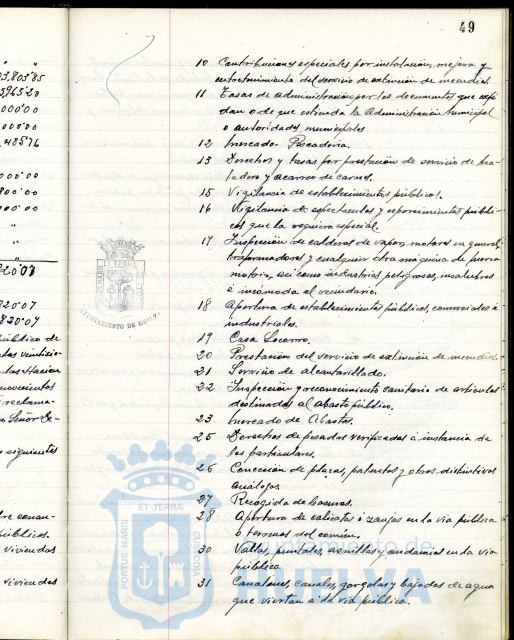 49
10 Contribuciones especiales por instalación, mejora y
entretenimiento del servicio de extinción de incendios.
11 Tasas de administración por los documentos que expi-
dan o de que entienda la Administración municipal
o autoridades municipales
12 Mercado Pescadería.
13 Derechos y tasas por prestación de servicio de ma-
tadero y acarreo de carnes.
15 Vigilancia de establecimientos públicos.
16 Vigilancia de espectáculos y esparcimientos públi-
cos que la requiera especial.
17 Inspección de calderas de vapor, motores en general,
trasformadores y cualquier otra máquina de fuerza
motriz, así como industrias peligrosas, insalubres
é incómoda al vecindario.
18 Apertura de establecimientos públicos, comerciales é
industriales.
19 Casa Socorro.
20 Prestación del servicio de extinción de incendios.
21 Servicio de alcantarillado.
22 Inspección y reconocimiento sanitario de artículos
destinados al abasto público.
23 Mercado de Abastos.
25 Derechos de pesadas verificadas á instancia de
los particulares.
26 Concesión de placas, patentes y otros distintivos
análogos.
27 Recogida de basuras.
28 Apertura de calicatas ó zanjas en la vía pública
ó terrenos del común.
30 Vallas, puntales, asnillas y andamios en la vía
pública.
31 Canalones, canales, gorgolas y bajadas de agua
que viertan á la vía pública.
83,803'85
000'00
000'00
000'00
820'07
820'07
público de
las Hacien
novecientos
reclama-
Señor De-
siguientes
públicos.
viviendas
viviendas
PORTUS MARIS
ET TERRAE
CUSTODIA
AYUNTAMIENTO DE HUELVA
PORTUS MARIS
ET TERRÆ
CUSTODIA
Ayuntamiento de
HUELVA